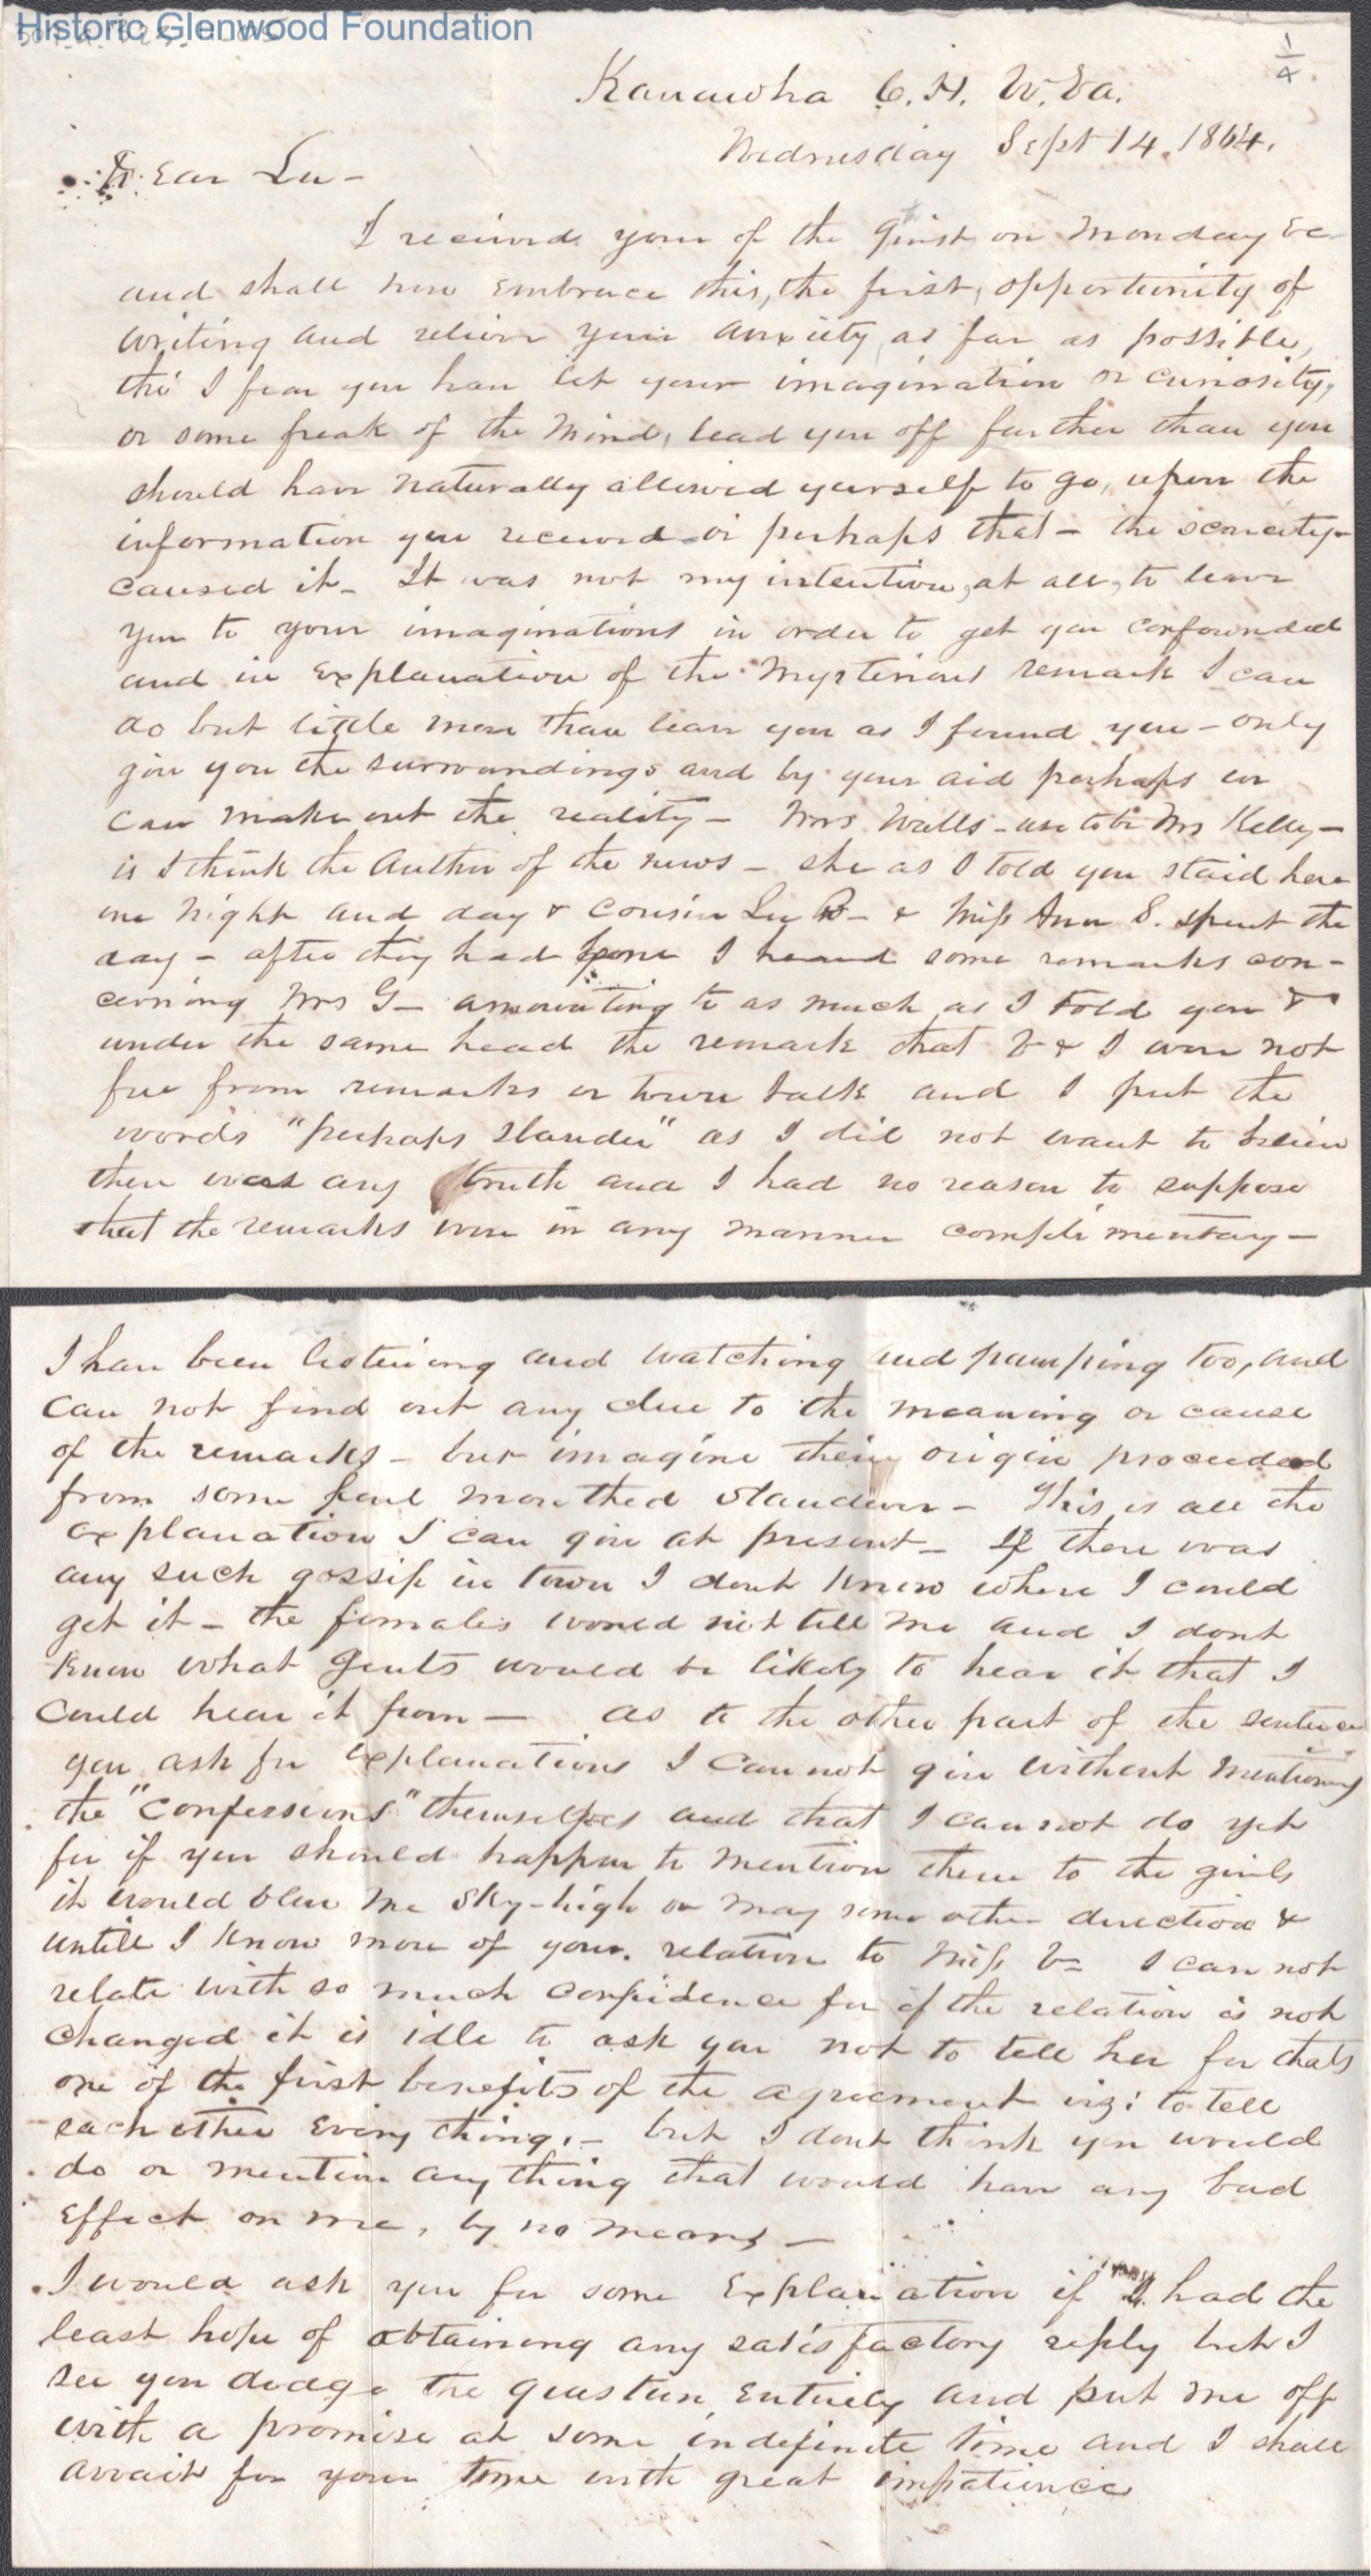 Historic Glenwood Foundation
1/4
Kanawha C.H. W.Va.
Wednesday Sept 14. 1864.
Dear Lu -
I received your of the 9th inst, on Monday Ec
and shall now embrace this, the first, opportunity of
writing and relieve your anxiety, as far as possible,
tho' I fear you have let your imagination or curiosity,
or some freak of the mind, lead you off further than you
should have naturally allowed yourself to go, upon the
information you received - or perhaps that - the scarcity -
caused it - It was not my intention, at all, to leave
you to your imaginations in order to get you confounded
and in explanation of the mysterious remark I can
do but little more than leave you as I found you - only
give you the surroundings and by your aid perhaps we
can make out the reality - Mrs. Wills - use to be Mrs Kelly -
is I think the Author of the news - she as I told you staid here
one night and day & cousin Lu B - & Miss Ann S. spent the
day - after they had gone I heard some remarks con-
cerning Mrs G - amounting to as much as I told you &
under the same head the remark that V & I were not
free from remarks or town talk and I put the
words "perhaps slander" as I did not want to believe
there was any truth and I had no reason to suppose
that the remarks were in any manner complimentary -
I have been listening and watching and pumping too, and
can not find out any clue to the meaning or cause
of the remarks - but imagine their origin proceeded
from some foul mouthed slanderer - This is all the
explanation I can give at present - If there was
any such gossip in town I dont know where I could
get it - the females would not tell me and I dont
know what gents would be likely to hear it that I
could hear it from - as to the other part of the sentence
you ask for explanations I cannot give without mentioning
the "confessions" themselves and that I cannot do yet
for if you should happen to mention them to the girls
it would blow me sky-high or may some other direction &
untill I know more of your relation to Miss V - I can not
relate with so much confidence for if the relation is not
changed it is idle to ask you not to tell her for thats
one of the first benefits of the agreement viz: to tell
each other every thing, - but I dont think you would
do or mention anything that would have any bad
effect on me, by no means -
I would ask you for some explanation if I had the
least hope of obtaining any satisfactory reply but I
see you dodge the question entirely and put me off
with a promise at some indefinite time and I shall
await for your time with great impatience